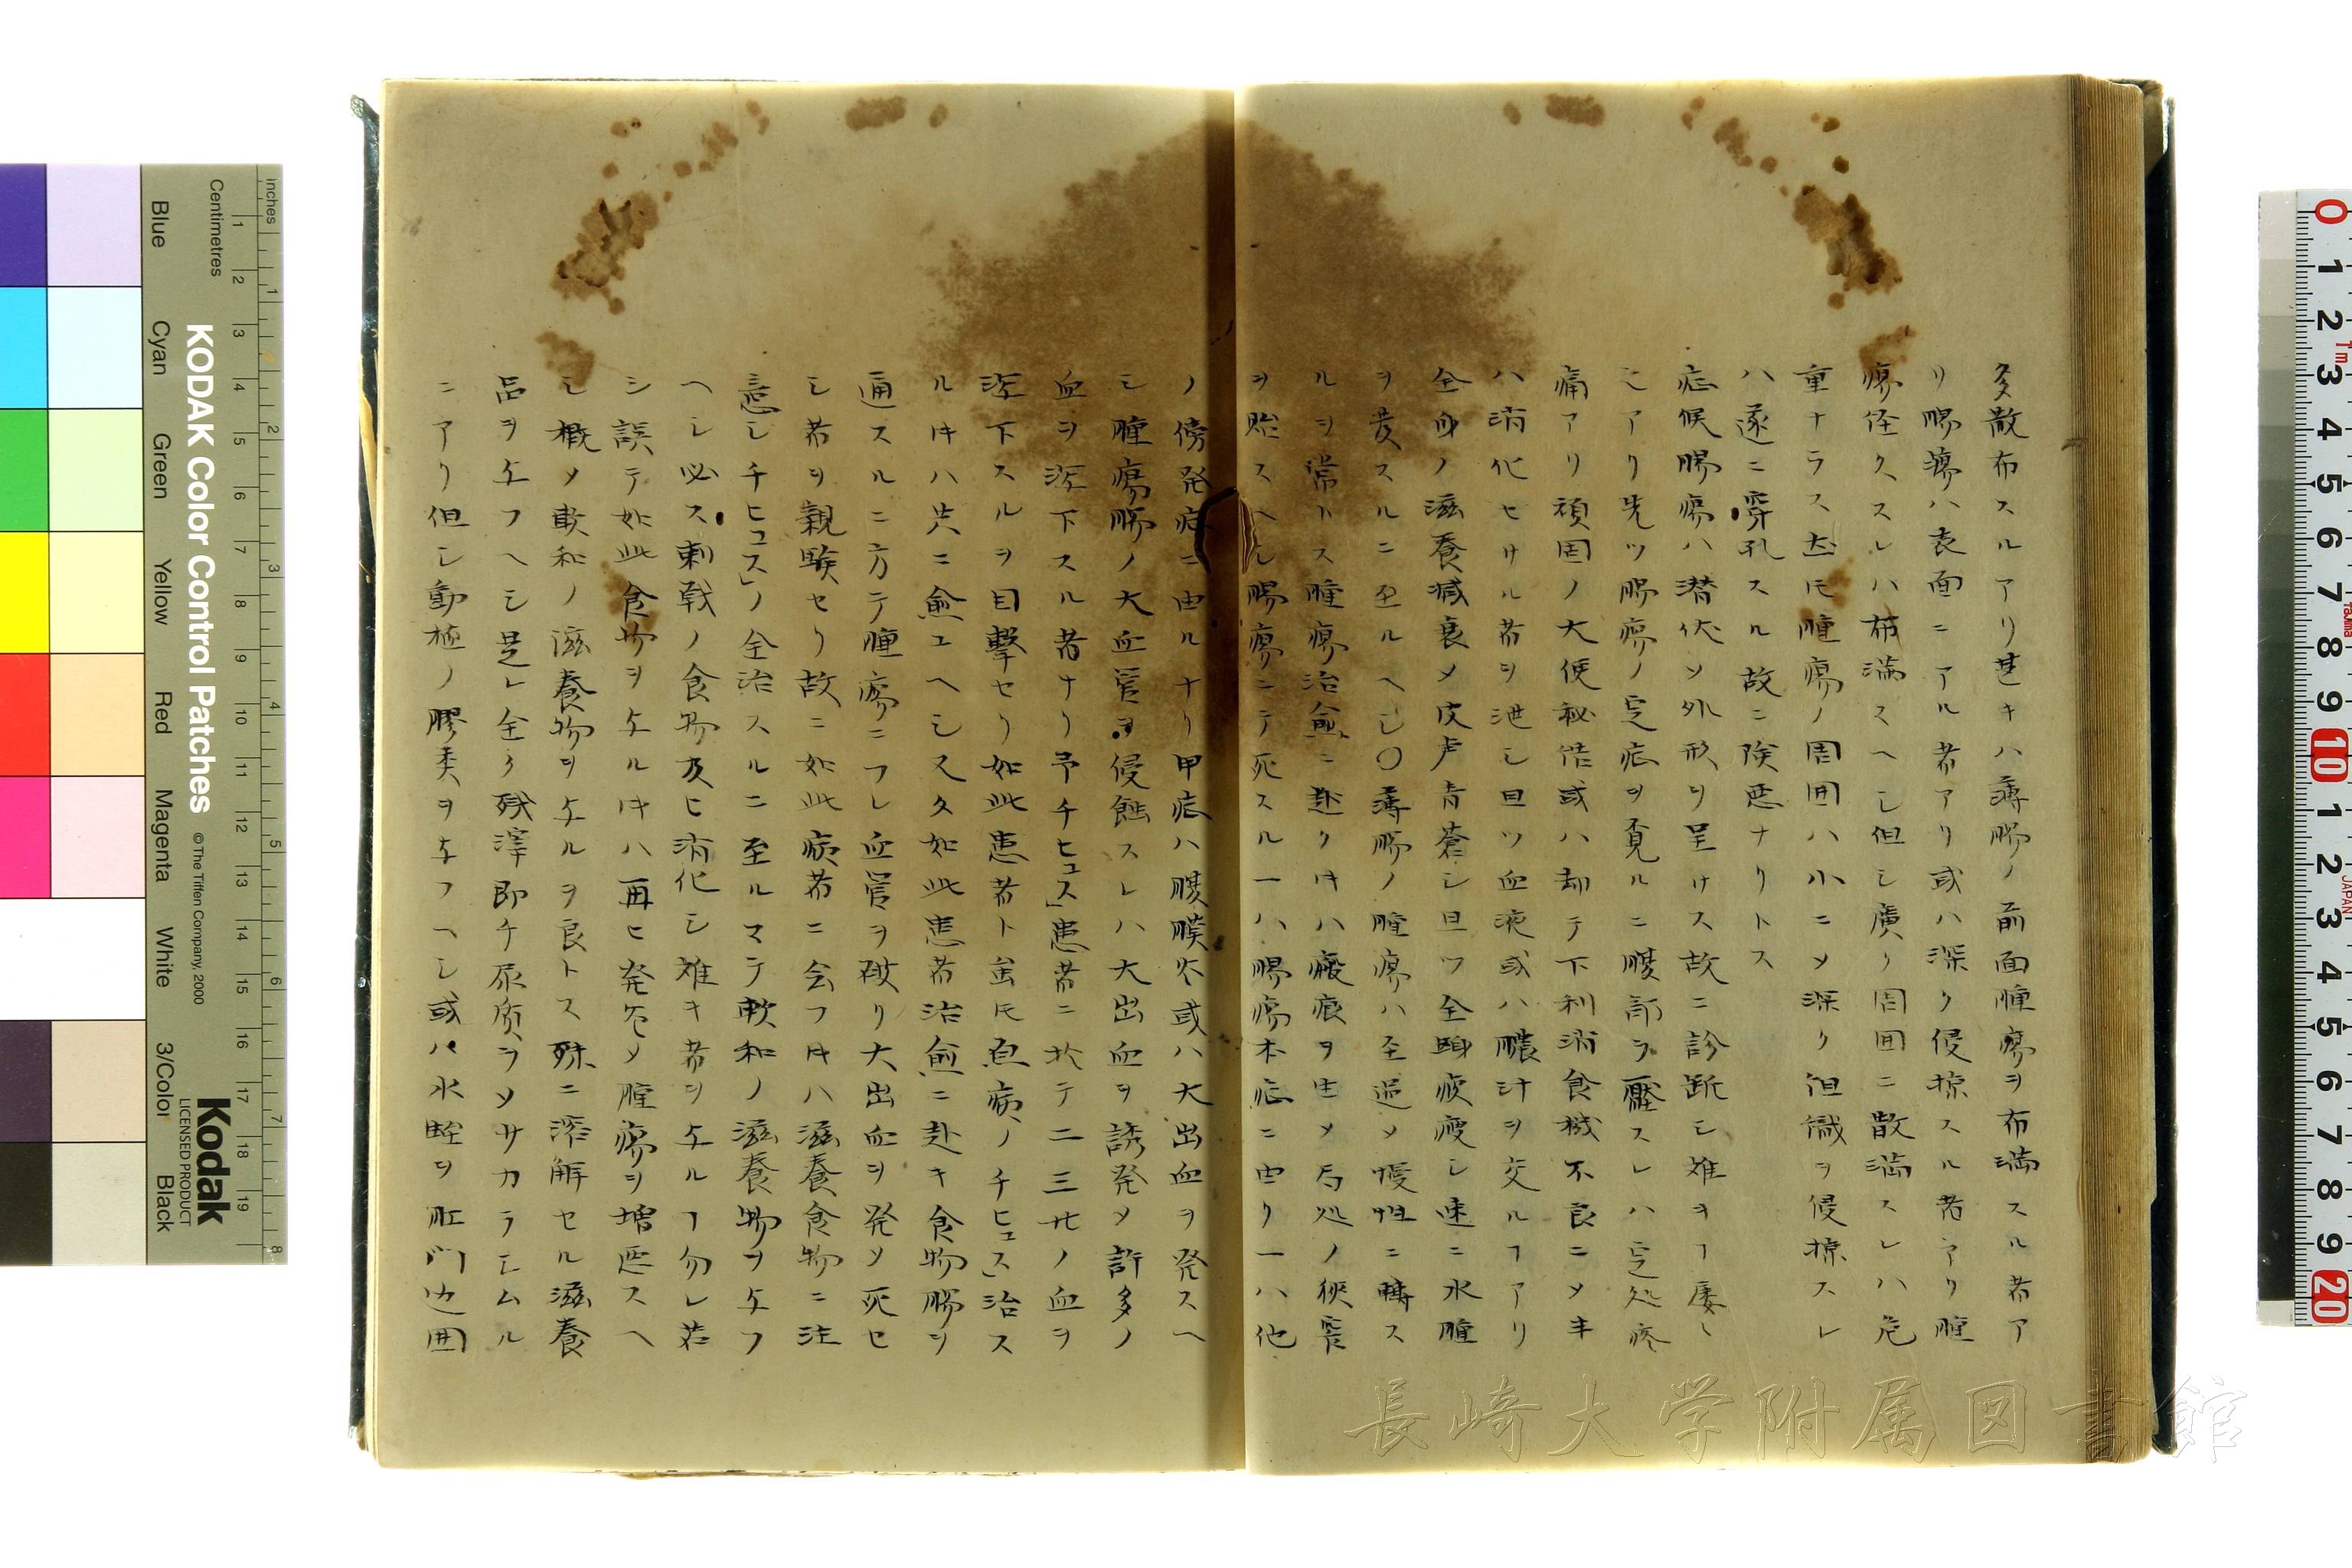 多散布スルアリ甚キハ薄腸ノ前面腫瘍ヲ布満スル者ア
リ腸瘍ハ表面ニアル者アリ或ハ深ク侵掠スル者アリ腫
瘍径クスレハ布満スヘシ但シ廣ク周囲ニ散満スレハ危
重ナラス𪜈腫瘍ノ周囲ハ小ニメ深ク組織ヲ侵掠スレ
ハ遂ニ穿孔スル故ニ険悪ナリトス
症候腸瘍ハ潜伏メ外形ヲ呈ケス故ニ診断シ難キヿ屡々
アリ先ツ腸瘍ノ定症ヲ覓ルニ腹部ヲ壓スレハ定処疼
痛アリ頑固ノ大便秘結或ハ却テ下利消食機不良ニメ
ハ消化セサル者ヲ泄シ且ツ血液或ハ膿汁ヲ交ルヿアリ
全身ノ滋養減衰メ皮膚青蒼シ且ツ全軀疲瘦シ速ニ水腫
ヲ発スルニ至ルヘシ〇薄腸ノ腫瘍ハ至逗メ慢性ニ轉ス
ルヲ常トス腫瘍治愈ニ赴ク𪜈ハ瘢痕ヲ生メ局処ノ狭窄
ヲ貽スヘシ腸瘍ニテ死スル一ハ腸瘍本症ニ由リ一ハ他
ノ傍発症ニ由ルナリ甲症ハ腹膜炎或ハ大出血ヲ発スヘ
シ腫瘍腸ノ大血管ヲ侵蝕スレハ大出血ヲ誘発メ許多ノ
血ヲ瀉下スル者ナリ予チヒュス」患者ニ於テ二三廾ノ血ヲ
瀉下スルヲ目撃セリ如此患者ト虽モ原病ノチヒュス」治ス
ル𪜈ハ共ニ愈ユヘシ又夕如此患者治愈ニ赴キ食物腸ヲ
通スルニ方テ腫瘍ニフレ血管ヲ破リ大出血ヲ発メ死セ
シ者ヲ親験セリ故ニ如此病者ニ会フ𪜈ハ滋養食物ニ注
意シチヒュス」ノ全治スルニ至ルマテ軟和ノ滋養物ヲ与フ
ヘシ必ス刺戟ノ食物及ヒ消化シ難キ者ヲ与ルヿ勿レ若
シ誤テ如此食物ヲ与ル𪜈ハ再ヒ発メ腫瘍ヲ増悪スヘ
シ概メ軟和ノ滋養物ヲ与ルヲ良トス殊ニ溶解セル滋養
品ヲ与フヘシ是レ全ク残滓即チ尿質ヲメサカラシムル
ニアリ但シ動植ノ膠类ヲ与フヘシ或ハ水蛭ヲ肛門辺囲
KODAK Color Control Patches
© The Tiffen Company, 2000
Kodak
LICENSED PRODUCT
Inches
Centimetres
Blue Cyan Green Yellow Red Magenta White 3/Color Black
長崎大学附属図書館
JAPAN